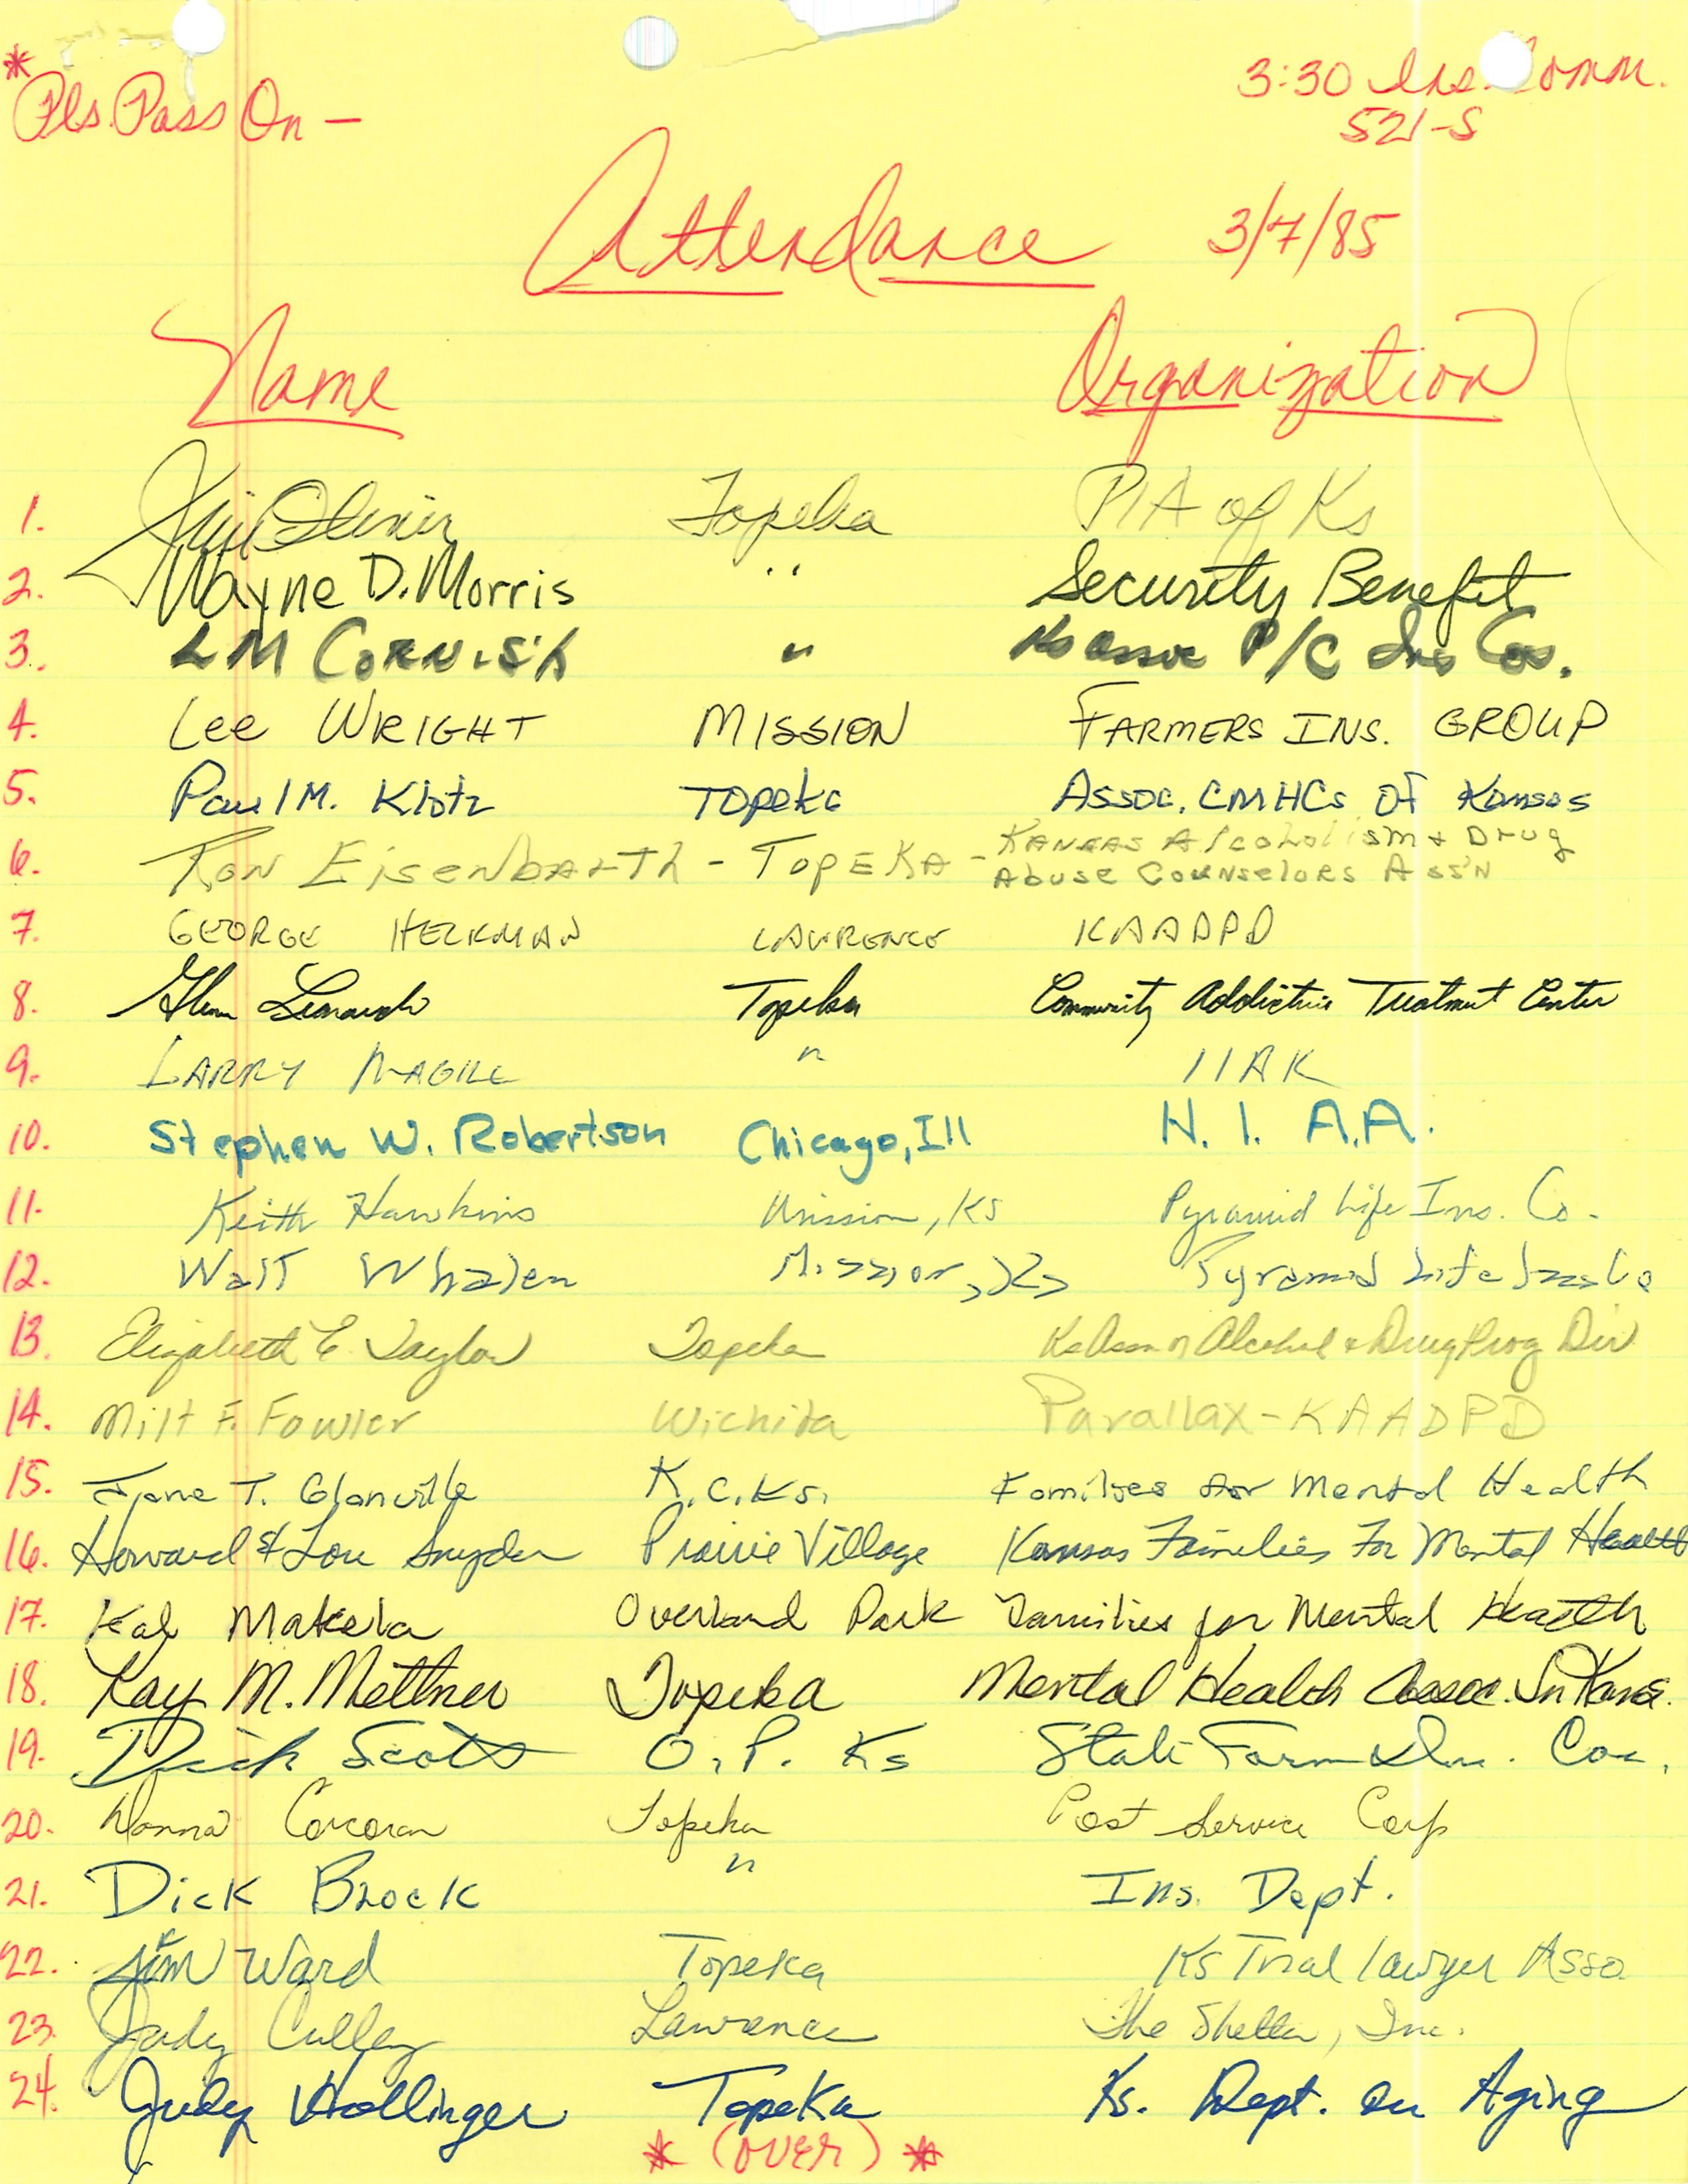 * Pls. Pass On -
3:30 Ins. Comm.
521-S
Attendance 3/7/85
Name Organization
1. Topeka PIA of Ks
2. Wayne D. Morris " Security Benefit
3. LM Cornish " Ks Assoc P/C Ins Cos.
4. Lee WRIGHT MISSION FARMERS INS. GROUP
5. Paul M. Klotz Topeka Assoc. CMHCs of Kansas
6. Ron Eisenbarth - Topeka - Kansas Alcoholism & Drug
Abuse Counselors Ass'n
7. GEORGE HECKMAN LAWRENCE KAADPD
8. Glenn Leonardo Topeka Community Addictive Treatment Center
9. LARRY MAGILL " IIAK
10. Stephen W. Robertson Chicago, Ill H. I. A.A.
11. Keith Hawkins Mission, KS Pyramid Life Ins. Co.
12. Walt Whalen Mission, Ks Pyramid Life Ins Co
13. Elizabeth E. Taylor Topeka Ks Assn of Alcohol & Drug Prog Dir
14. Milt F. Fowler Wichita Parallax - KAADPD
15. Jane T. Glanville K.C.Ks. Families for Mental Health
16. Howard & Lou Snyder Prairie Village Kansas Families For Mental Health
17. Kay Makela Overland Park Families for Mental Health
18. Kay M. Mettner Topeka Mental Health Assoc. In Kans.
19. Dick Scott O.P. Ks State Farm Ins. Cos.
20. Donna Corcoran Topeka Post Service Corp
21. Dick Brock " Ins. Dept.
22. Jim Ward Topeka Ks Trial lawyer Asso
23. Judy Culley Lawrence The Shelter, Inc.
24. Judy Hollinger Topeka Ks. Dept. on Aging
* (OVER) *